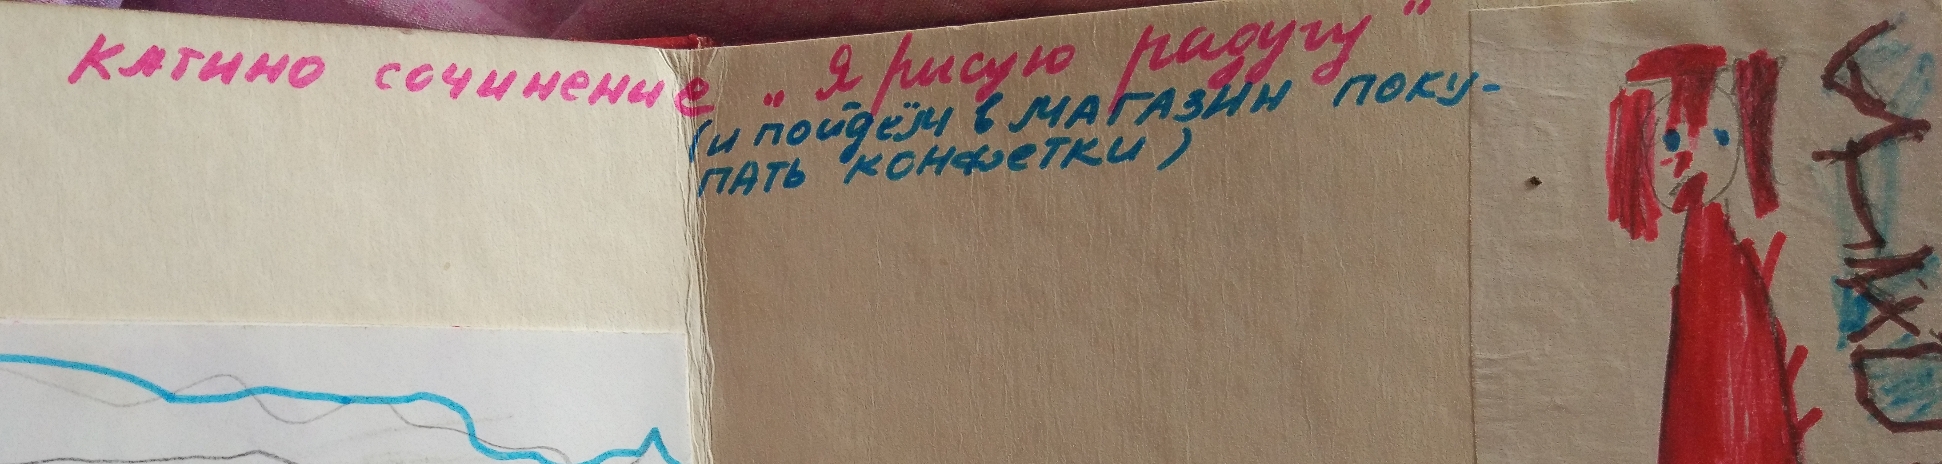 Катино сочинение „Я рисую радугу"
(и пойдём в магазин поку-
пать конфетки)